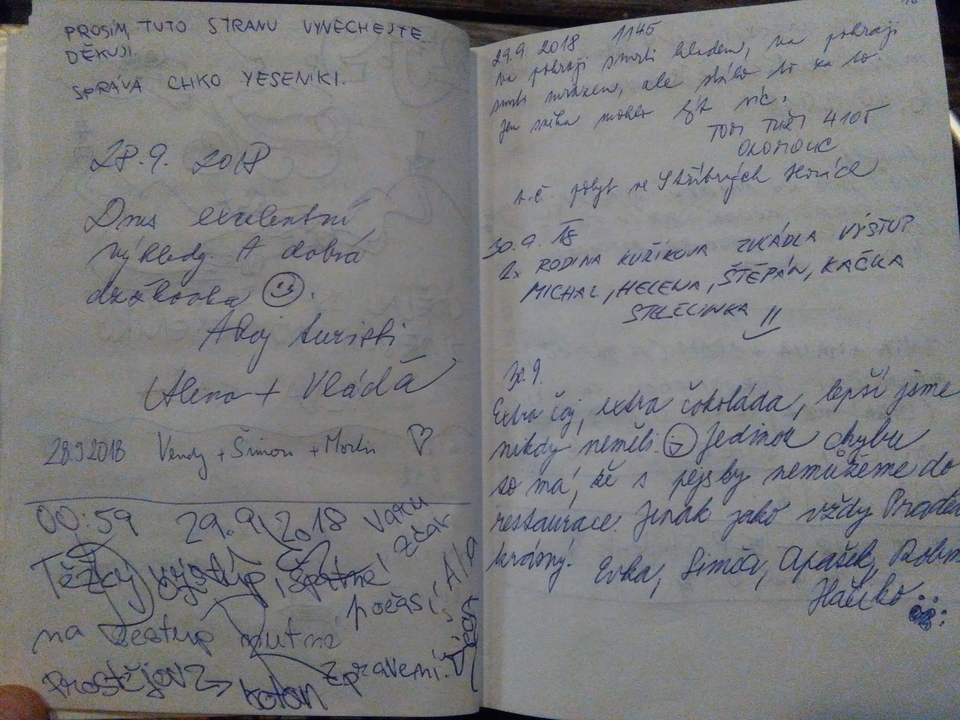 PROSÍM, TUTO STRANU VYNECHEJTE
DĚKUJI.
SPRÁVA CHKO YESENIKI.
28.9. 2018
Dnes excelentní
výhledy. A dobrá
Ahoj turisti
Alena + Vláďa
28.9.2018 Vendy + Šimon +
00:59 29.9.2018
Těžký výstup, špatné
počasí
na sestup nutné
Prostějov
29.9. 2018 1145
na pokraji smrti hladem, na pokraji
smrti mrazem, ale stálo to za to.
Jen sněhu mohlo být víc.
4105
OLOMOUC
t.č. pobyt ve Stříbrných Horách
30.9. 18
2x RODINA KUŘÍKOVA ZVLÁDLA VÝSTUP
MICHAL, HELENA, ŠTĚPÁN, KAČKA
30.9.
Extra čaj, extra čokoláda, lepší jsme
nikdy neměli. Jedinou chybu
to má, že s pejsky nemůžeme do
restaurace. Jinak jako vždy
krásný. Evka, Simča,